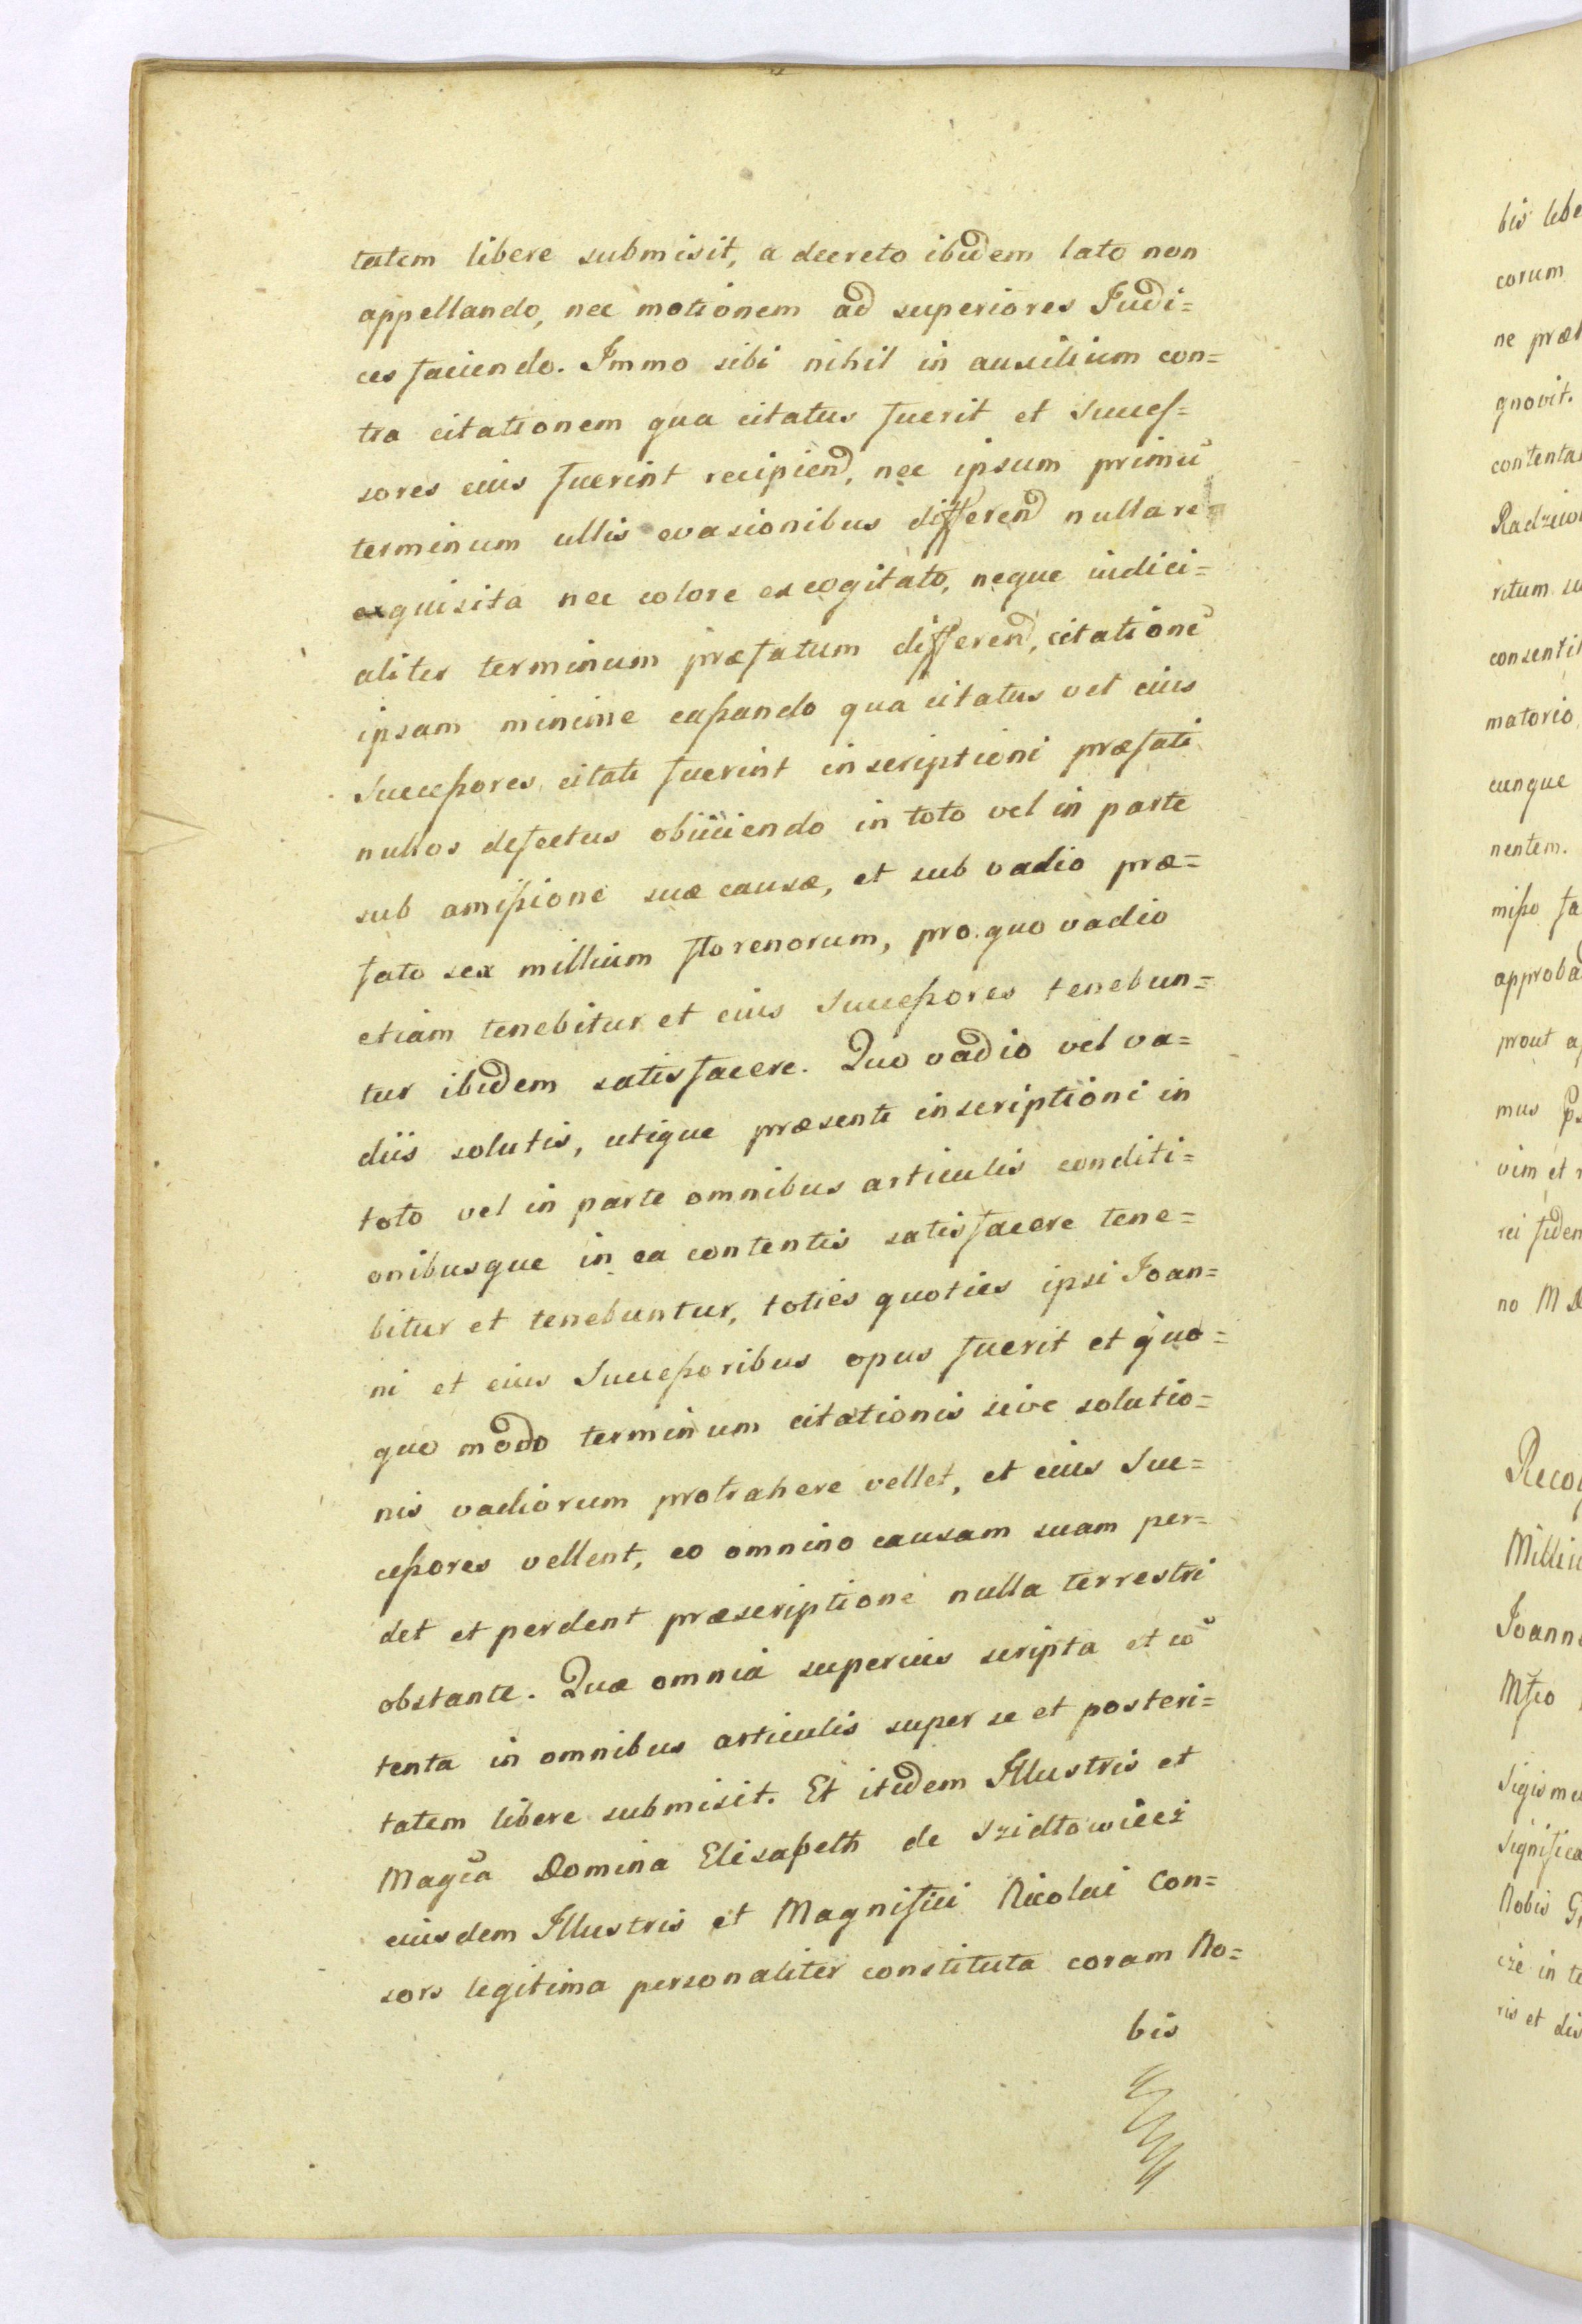 tatem libere submisit, a decreto ibidem lato non
appellando, nec motionem ad superiores Judi=
ces faciendo. Immo sibi nihil in auxilium con=
tra citationem qua citatus fuerit et Succes=
sores eius fuerint recipiend, nec ipsum primũ
terminum ullis evasionibus differend nulla re
exquisita nec colore excogitato, neque iudici=
aliter terminum præfatum differend, citationẽ
ipsam minime cassando qua citatus vel eius
Successores citati fuerint inscriptioni præfati
nullos defectus obiiciendo in toto vel in parte
sub amissione suæ causæ, et sub vadio præ=
fato sex millium florenorum, pro quo vadio
etiam tenebitur et eius Successores tenebun=
tur ibidem satisfacere. Quo vadio vel va=
diis solutis, utique præsenti inscriptioni in
toto vel in parte omnibus articulis conditi=
onibusque in ea contentis satisfacere tene=
bitur et tenebuntur, toties quoties ipsi Joan=
ni et eius Successoribus opus fuerit et quo=
quo modo terminum citationis sive solutio=
nis vadiorum protrahere vellet, et eius Suc=
cessores vellent, eo omnino causam suam per=
det et perdent præscriptione nulla terrestri
obstante. Quæ omnia superius scripta et cõ
tenta in omnibus articulis super se et posteri=
tatem libere submisit. Et itidem Illustris et
Magca Domina Elisabeth de Szidłowiecz
eiusdem Illustris et Magnifici Nicolai Con=
sors legitima personaliter constituta coram No=
bis
bis libe
corum
ne præ
gnovit.
contenta
Radziw
ritum su
consenti
matorio
cunque
nentem.
misso fa
approba
prout a
mus
vim et r
rei fiden
no M D
Reco
Milli
Joann
Sigismu
Significa
Nobis G
cze in te
ris et dis